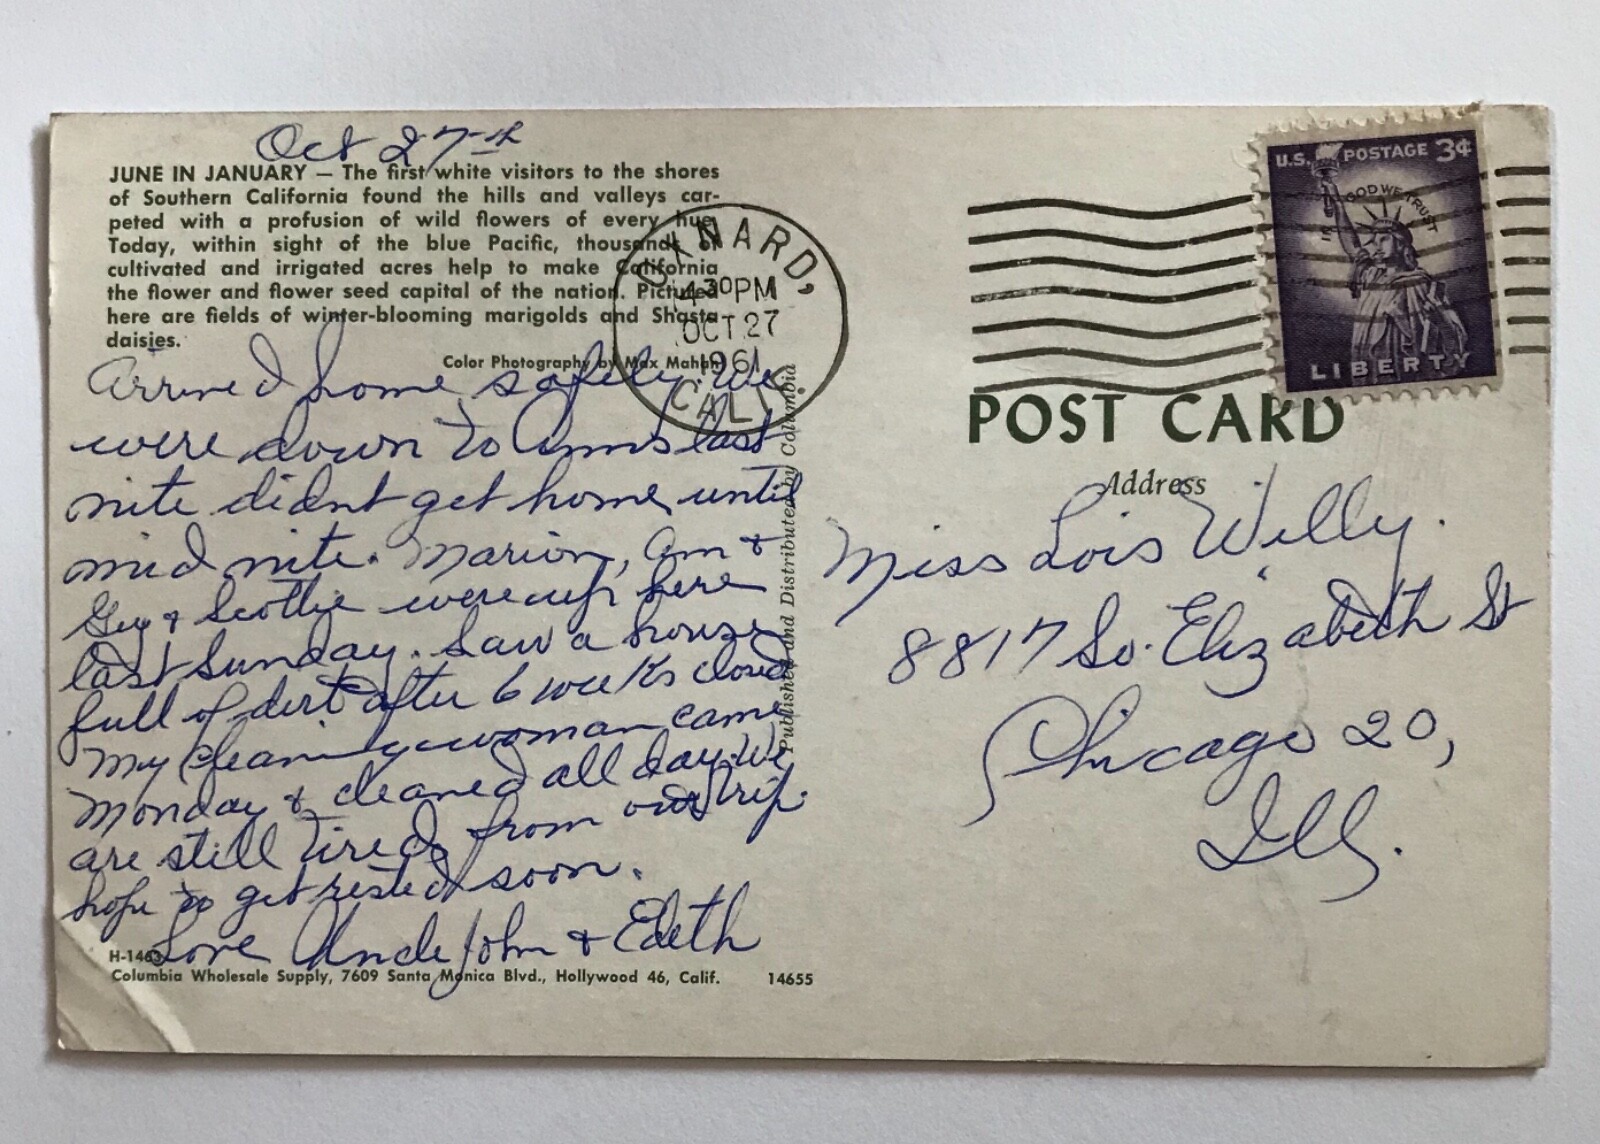 Oct 27th
JUNE IN JANUARY — The first white visitors to the shores
of Southern California found the hills and valleys car-
peted with a profusion of wild flowers of every hue.
Today, within sight of the blue Pacific, thousands of
cultivated and irrigated acres help to make California
the flower and flower seed capital of the nation. Pictured
here are fields of winter-blooming marigolds and Shasta
daisies.
Color Photography by Max Mahan
Arrived home safely. We
were down to Anns last
nite didnt get home until
mid nite. Marion, Ann &
Guy & Scottie were up here
last Sunday. Saw a house
full of dirt after 6 weeks closed
My cleaning woman came
Monday & cleaned all day. We
are still tired from our trip.
hope to get rested soon.
Love Uncle John & Edith
H-1463
Columbia Wholesale Supply, 7609 Santa Monica Blvd., Hollywood 46, Calif. 14655
Published and Distributed by Columbia
OXNARD,
4 30 PM
OCT 27
1961
CALIF.
U.S. POSTAGE 3¢
IN GOD WE TRUST
LIBERTY
POST CARD
Address
Miss Lois Willy.
8817 So. Elizabeth St
Chicago 20,
Ill.